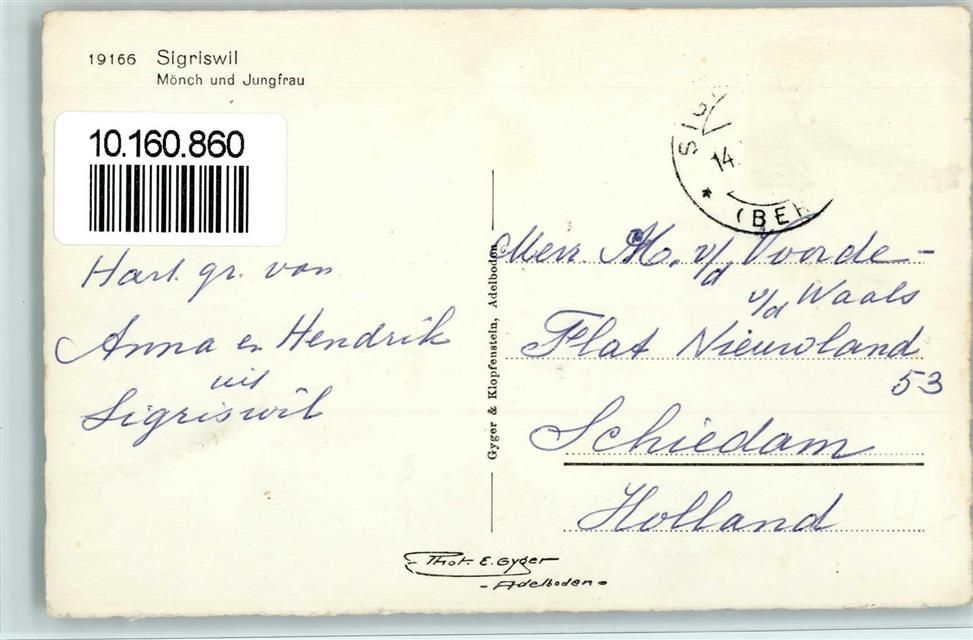 19166 Sigriswil
Mönch und Jungfrau
10.160.860
Hart. gr. van
Anna en Hendrik
uit
Sigriswil
Gyger & Klopfenstein, Adelboden
SIG
14.
* (BER
M. v/d Voorde-
v/d Waals
Flat Nieuwland
53
Schiedam
Holland
Phot. E. Gyger
- Adelboden -